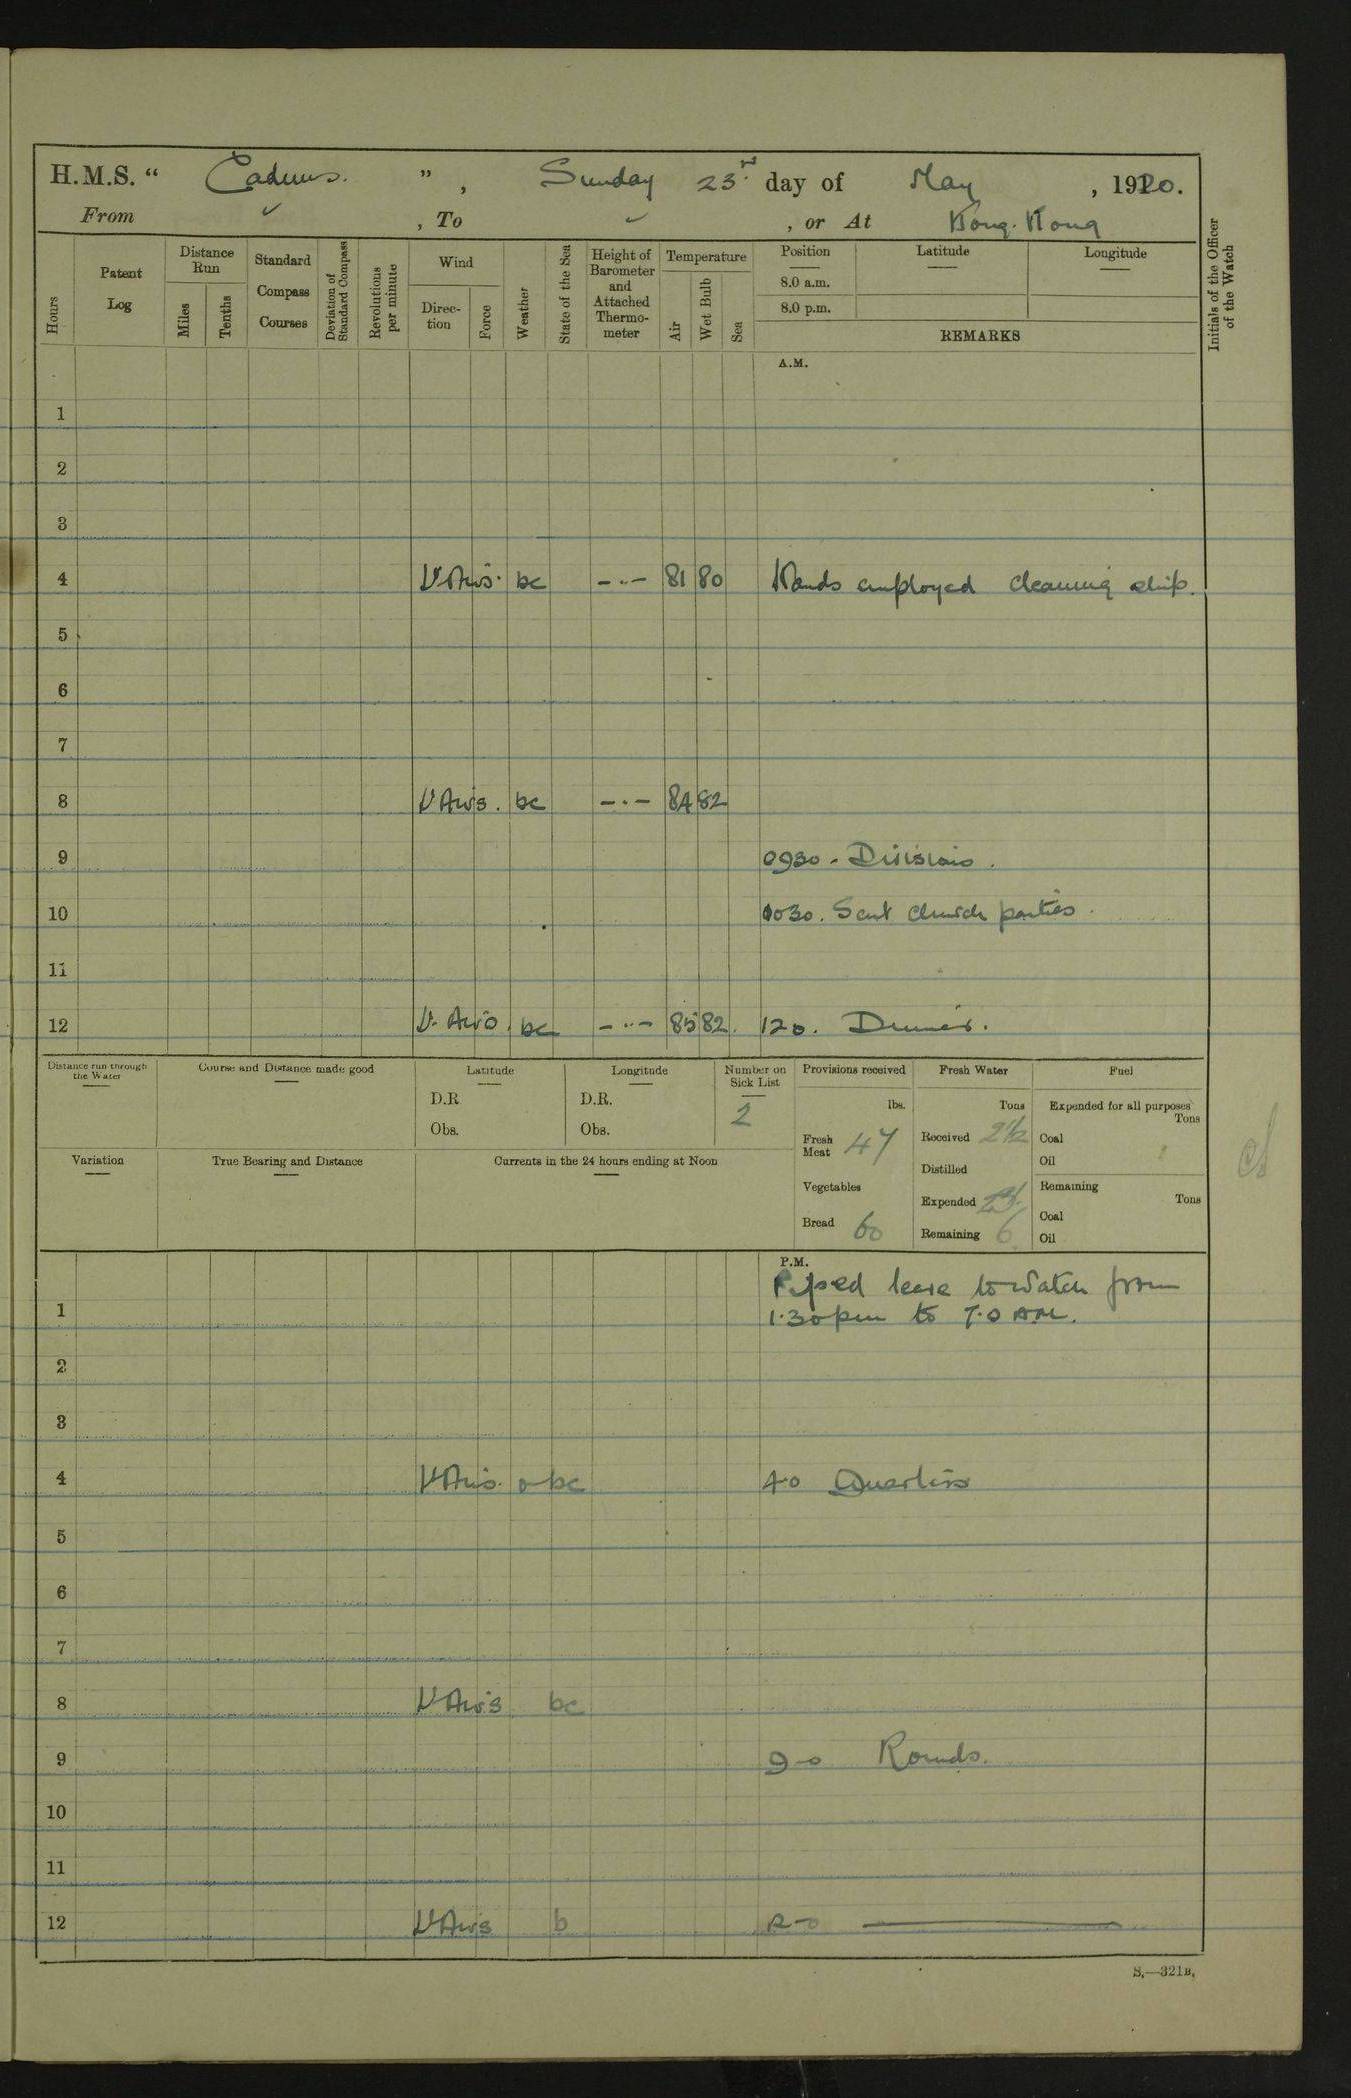 H.M.S. “ Cadmus. ” , Sunday 23rd. day of May , 1920.
From ✓ , To ✓ , or At Hong. Kong
Hours
Patent Log
Distance Run
Miles
Tenths
Standard Compass Courses
Deviation of Standard Compass
Revolutions per minute
Wind
Direction
Force
Weather
State of the Sea
Height of Barometer and Attached Thermometer
Temperature
Air
Wet Bulb
Sea
Position
8.0 a.m.
8.0 p.m.
Latitude
Longitude
REMARKS
Initials of the Officer of the Watch
A.M.
1
2
3
4 V. Airs. bc -..- 81 80 Hands employed cleaning ship.
5
6
7
8 V Airs. bc -.- 84 82
9 0930 - Divisions.
10 1030. Sent church parties.
11
12 V. Airs. bc -..- 85 82. 12 0. Dinner.
Distance run through the Water
Course and Distance made good
Latitude
D.R
Obs.
Longitude
D.R.
Obs.
Number on Sick List
2
Provisions received
lbs.
Fresh Meat 47
Vegetables
Bread 60
Fresh Water
Tons
Received 2 1/2
Distilled
Expended
Remaining 6
Fuel
Expended for all purposes
Tons
Coal
Oil
Remaining
Tons
Coal
Oil
Variation
True Bearing and Distance
Currents in the 24 hours ending at Noon
P.M.
Piped leave to watch from
1 1.30 pm to 7.0 AM.
2
3
4 V Airs. o bc 4-0 Quarters
5
6
7
8 V Airs bc
9 9-0 Rounds.
10
11
12 V Airs b 12-0
S.—321B.